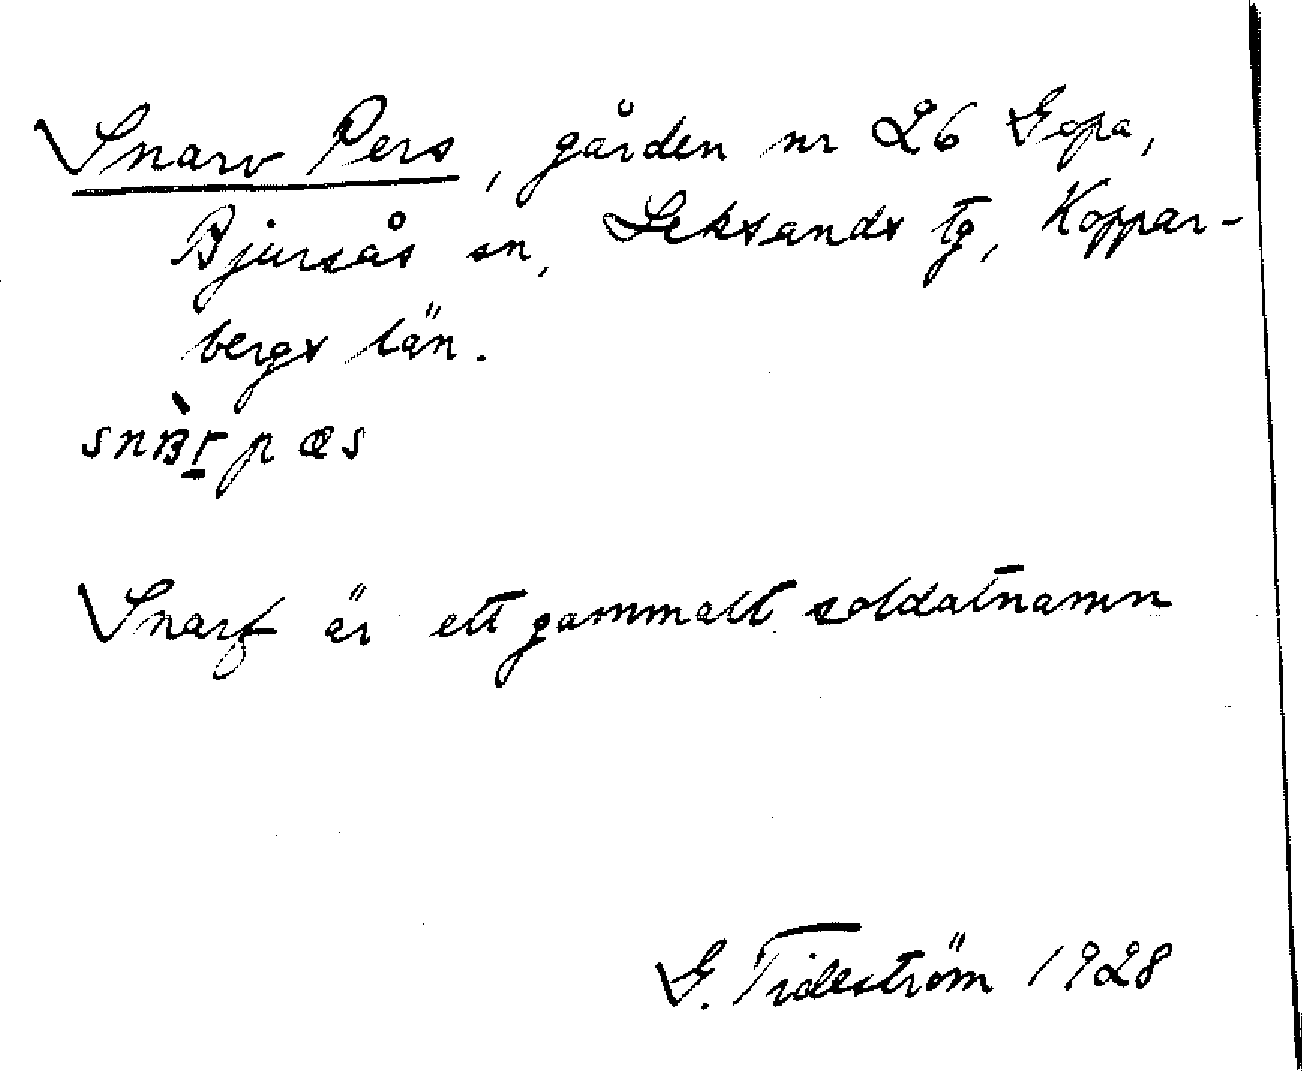 Snarv Pers, gården nr 26 Gopa,
Bjursås sn, Leksands tg, Koppar-
bergs län.
Snarf är ett gammalt soldatnamn
G. Tideström 1928